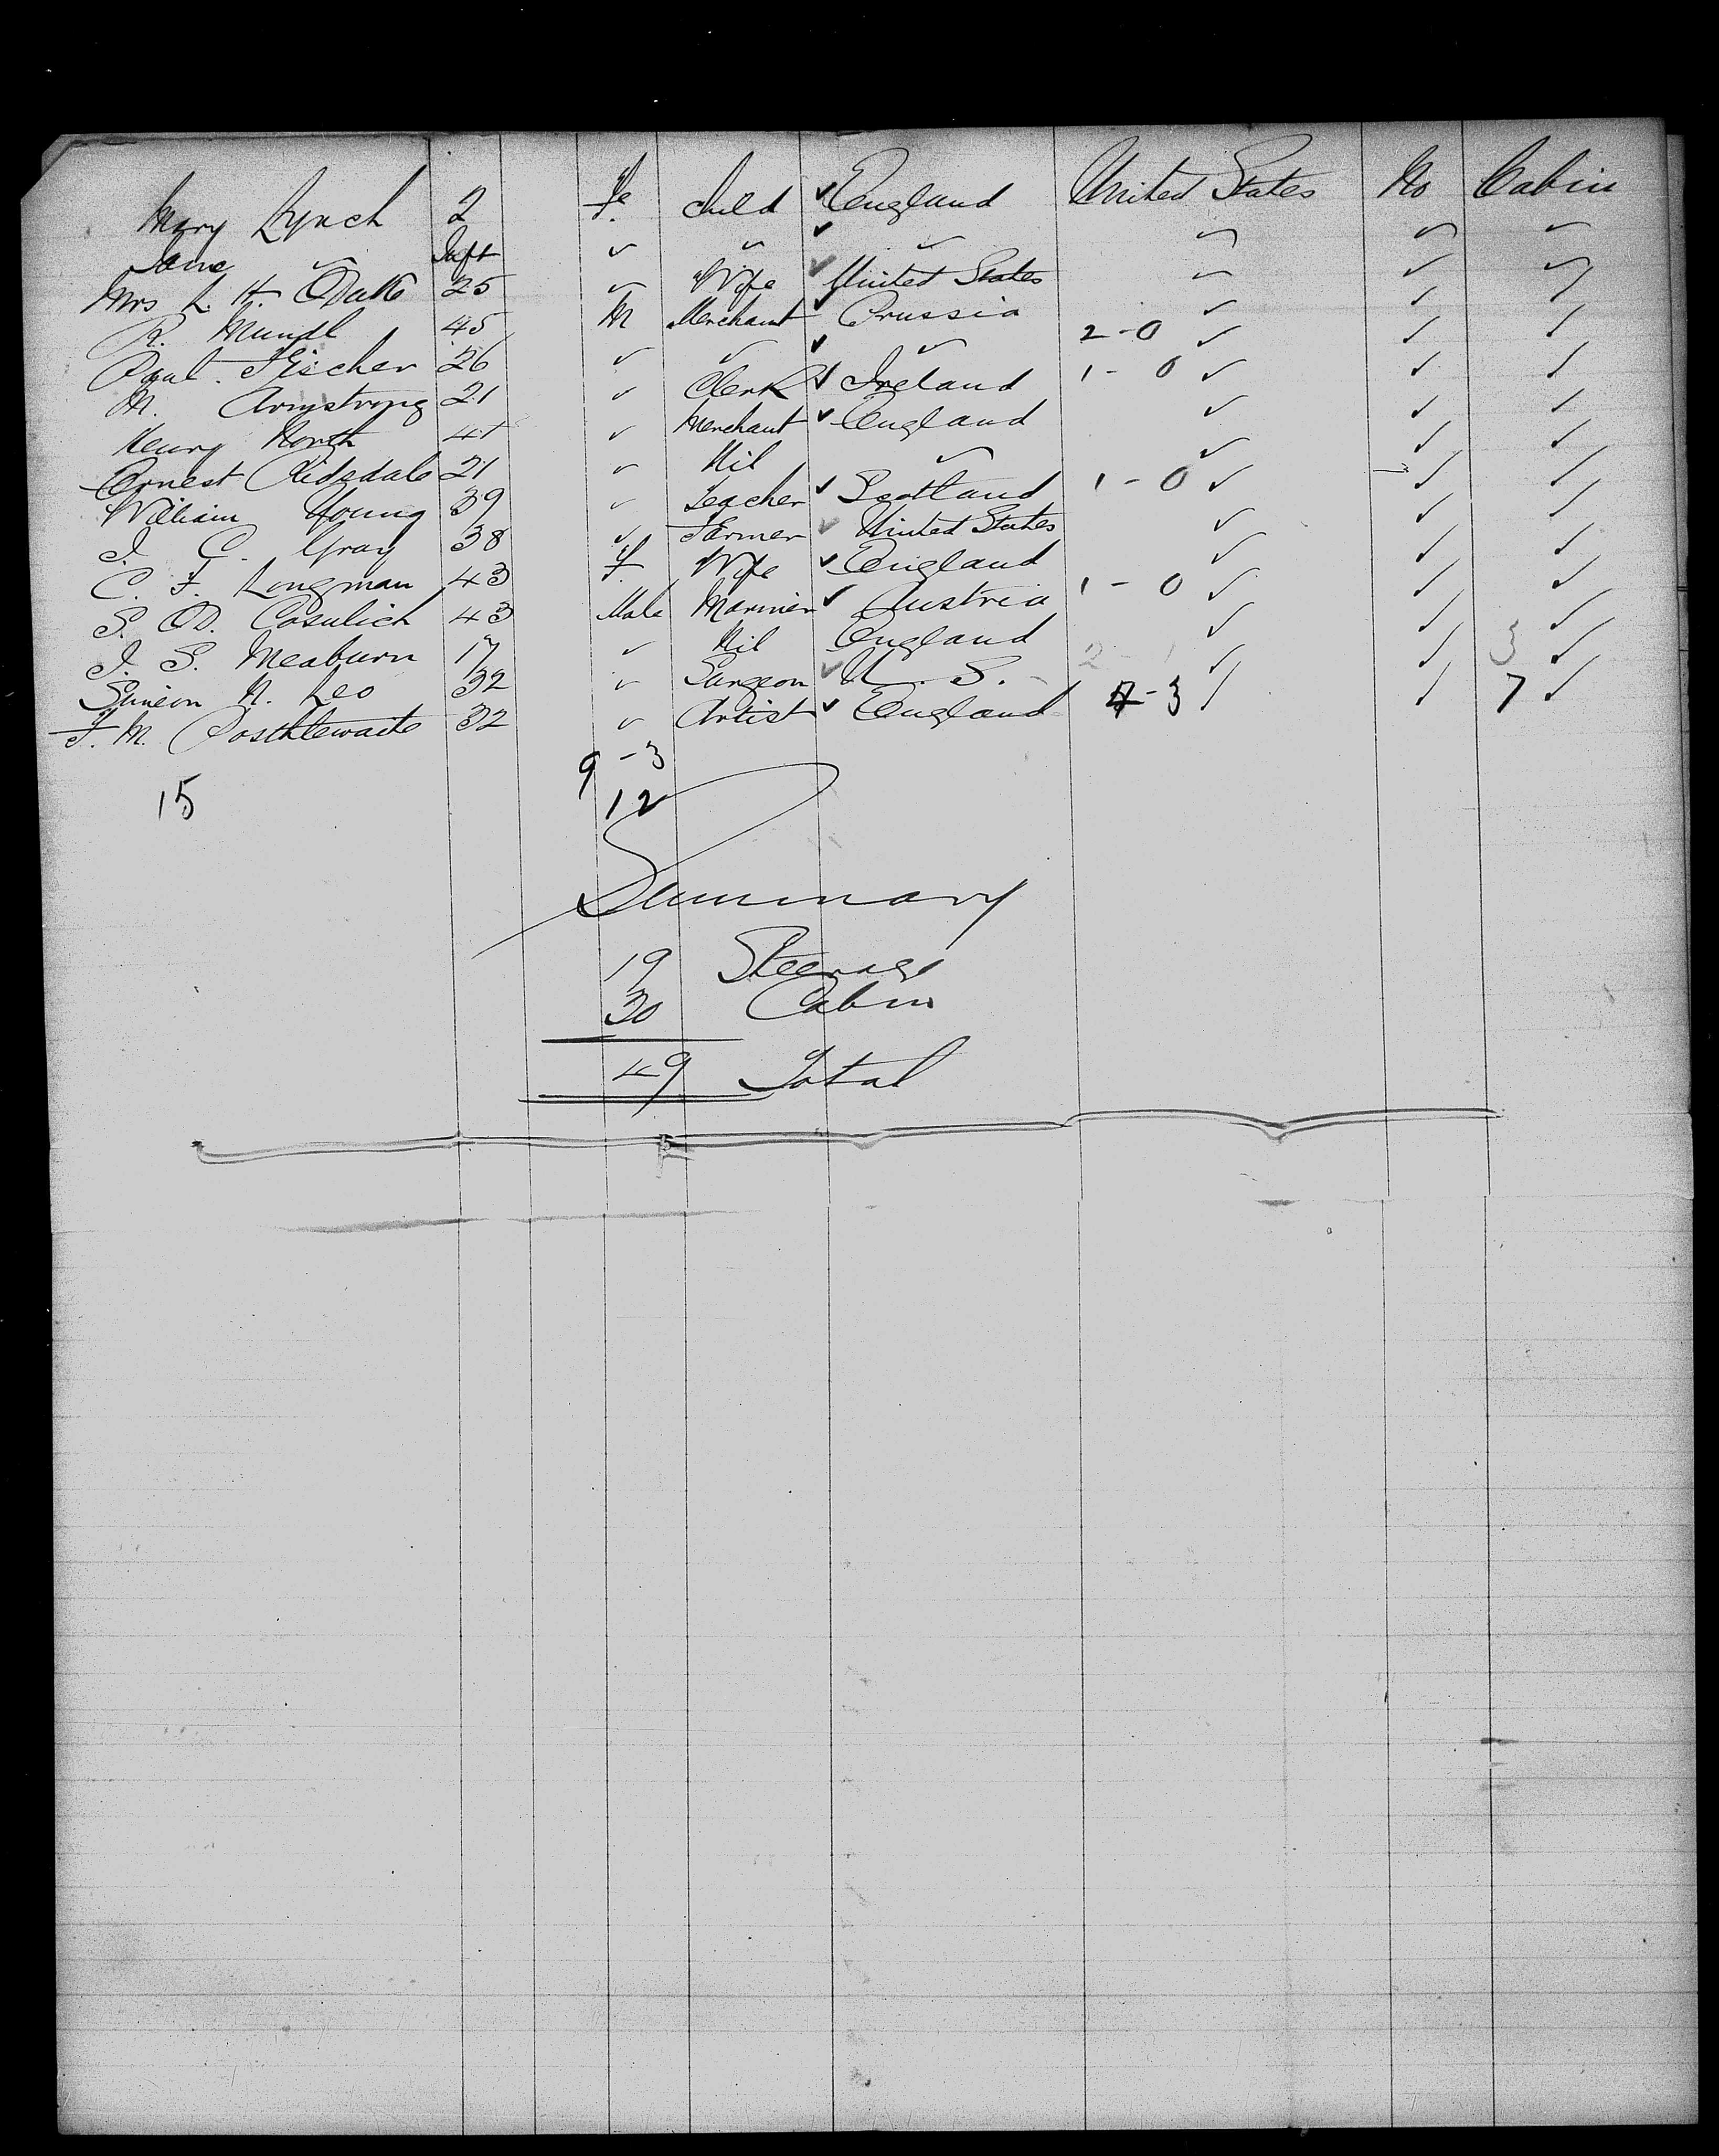 Mary Lynch 2 Fe Child ✓ England United States No Cabin
Jane ✓ Inft ✓ ✓ ✓ ✓ ✓ ✓ ✓
Mrs L. H. 25 ✓ Wife ✓ United States ✓ ✓ ✓
R. Mundl 45 M Merchant ✓ Prussia ✓ ✓ ✓
Paul Fischer 26 ✓ ✓ ✓ ✓ 2-0 ✓ ✓ ✓
M. Armstrong 21 ✓ Clerk ✓ Ireland 1-0 ✓ ✓ ✓
Henry North 41 ✓ Merchant ✓ England ✓ ✓ ✓
Ernest Ridsdale 21 ✓ Nil ✓ ✓ ✓ ✓
William Young 39 ✓ Teacher ✓ Scotland 1-0 ✓ ✓ ✓
J. C. Gray 38 ✓ Farmer ✓ United States ✓ ✓ ✓
C. F. Longman 43 F. Wife ✓ England ✓ ✓ ✓
S. D. Cosulich 43 Male Mariner ✓ Austria 1-0 ✓ ✓ ✓
J. S. Meaburn 17 ✓ Nil England ✓ ✓ ✓
Simeon N. Leo 32 ✓ Surgeon ✓ U. S. 2-1 ✓ ✓ 3 ✓
F. M. Posthlewaite 32 ✓ Artist ✓ England 7-3 ✓ ✓ 7 ✓
9-3
15 12
Summary
19 Steerage
30 Cabin
49 Total